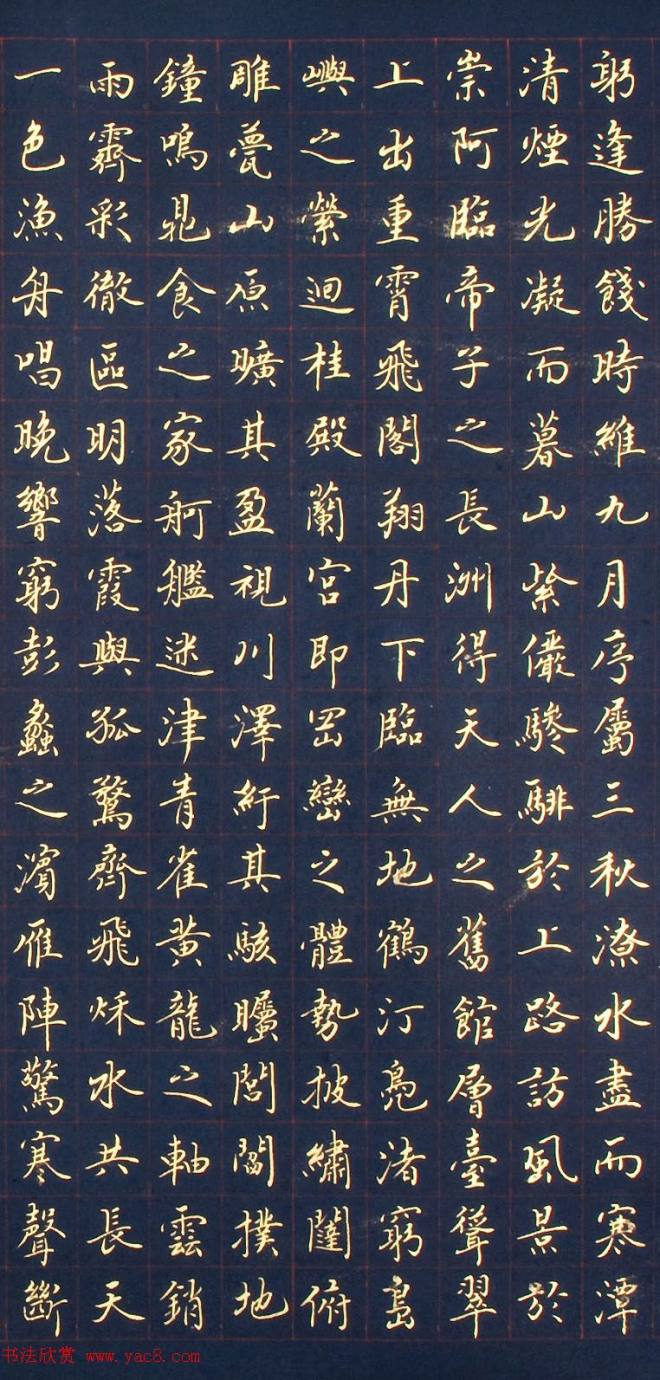 躬逢勝餞時維九月序屬三秋潦水盡而寒潭
清煙光凝而暮山紫儼驂騑於上路訪風景於
崇阿臨帝子之長洲得天人之舊館層臺聳翠
上出重霄飛閣翔丹下臨無地鶴汀鳧渚窮島
嶼之縈迴桂殿蘭宮即岡巒之體勢披繡闥俯
雕甍山原曠其盈視川澤紆其駭矚閭閻撲地
鐘鳴鼎食之家舸艦迷津青雀黃龍之軸雲銷
雨霽彩徹區明落霞與孤鶩齊飛秌水共長天
一色漁舟唱晚響窮彭蠡之濱雁陣驚寒聲斷
书法欣赏 www.yac8.com